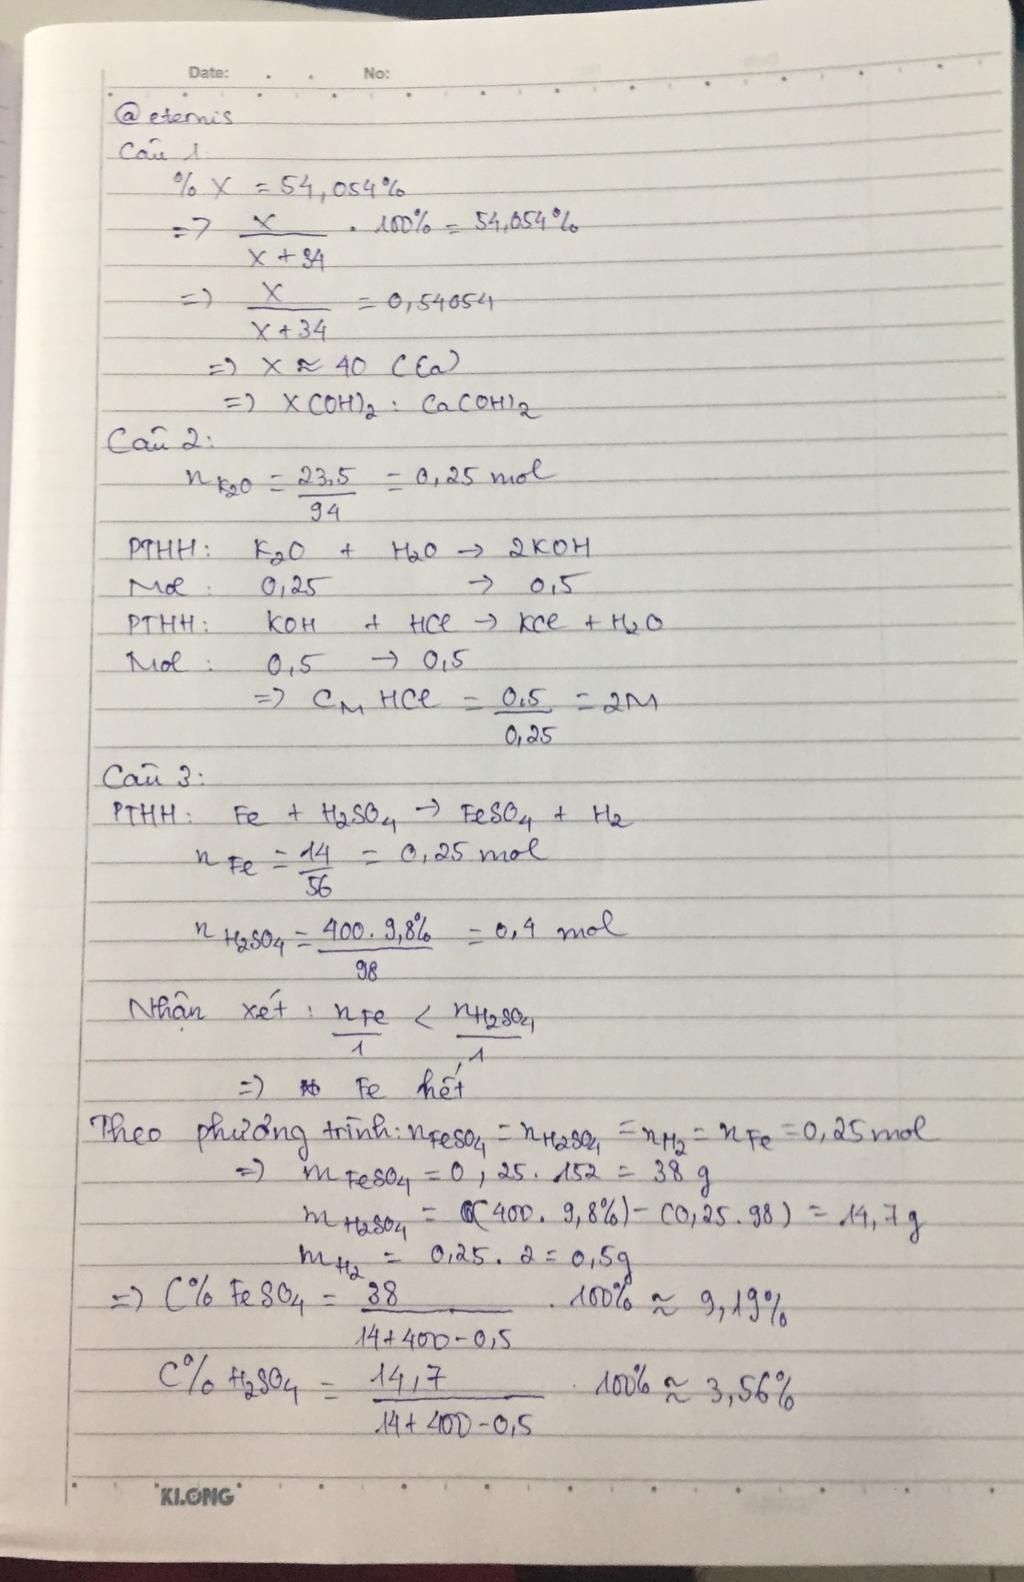 Date: No:
@eternis
Câu 1
% X = 54,054%
=> X / (X + 34) . 100% = 54,054%
=> X / (X + 34) = 0,54054
=> X ≈ 40 (Ca)
=> X(OH)2 : Ca(OH)2
Câu 2:
n K2O = 23,5 / 94 = 0,25 mol
PTHH: K2O + H2O -> 2KOH
Mol : 0,25 -> 0,5
PTHH: KOH + HCl -> KCl + H2O
Mol : 0,5 -> 0,5
=> CM HCl = 0,5 / 0,25 = 2M
Câu 3:
PTHH: Fe + H2SO4 -> FeSO4 + H2
n Fe = 14 / 56 = 0,25 mol
n H2SO4 = 400. 9,8% / 98 = 0,4 mol
Nhận xét : nFe / 1 < nH2SO4 / 1
=> Fe hết
Theo phương trình: nFeSO4 = nH2SO4 = nH2 = nFe = 0,25 mol
=> m FeSO4 = 0,25. 152 = 38 g
m H2SO4 = (400. 9,8%) - (0,25. 98) = 14,7 g
m H2 = 0,25. 2 = 0,5g
=> C% FeSO4 = 38 / (14+400-0,5) . 100% ≈ 9,19%
C% H2SO4 = 14,7 / (14+400-0,5) . 100% ≈ 3,56%
KLONG